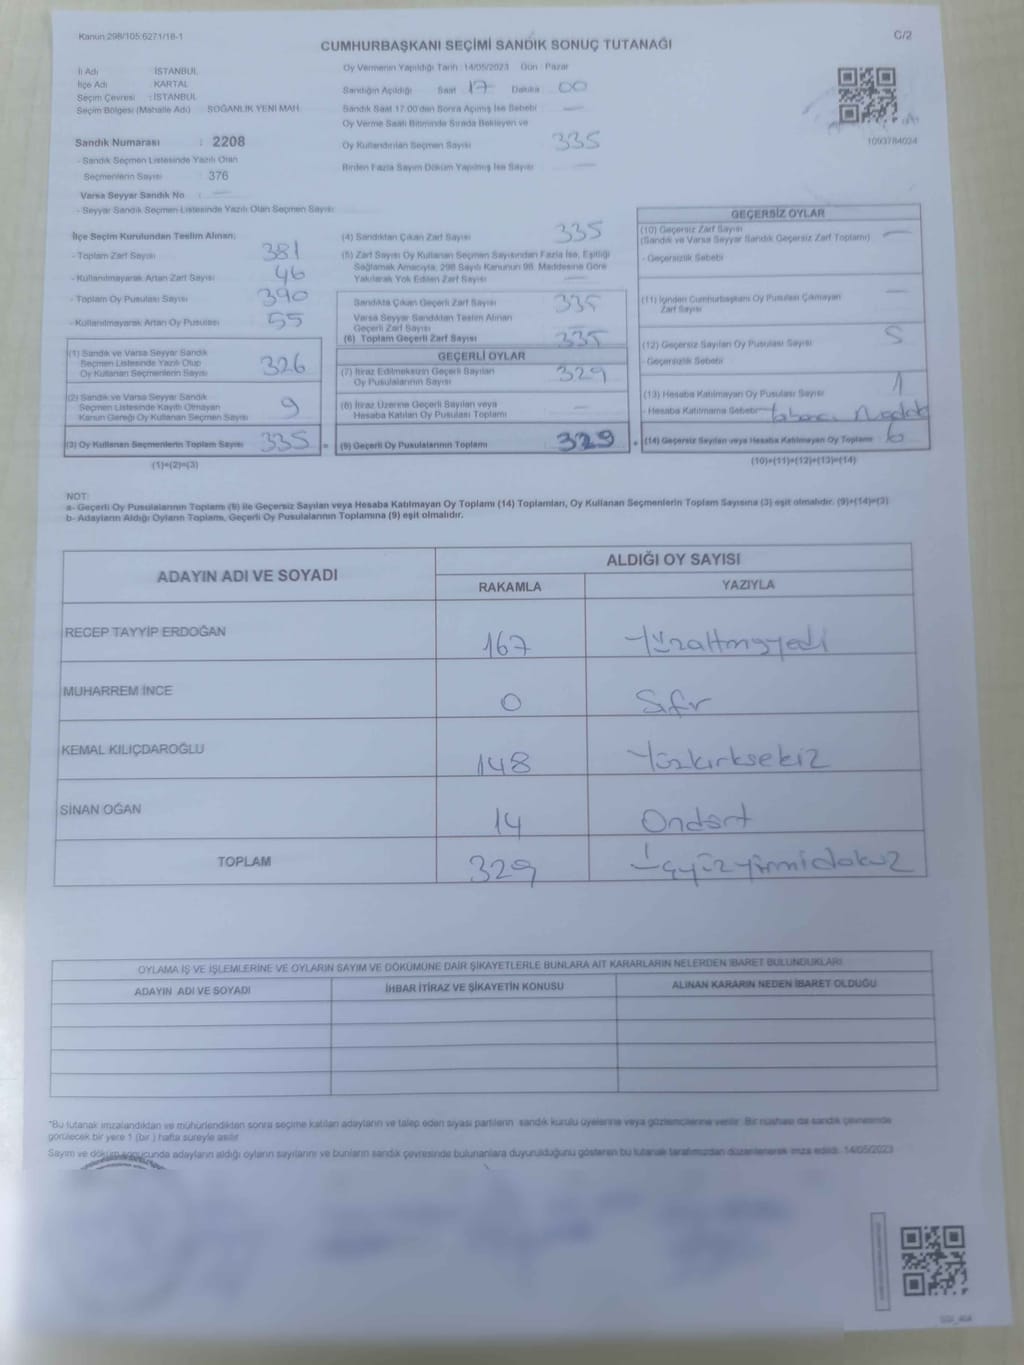 Kanun:298/105;6271/18-1
C/2
CUMHURBAŞKANI SEÇİMİ SANDIK SONUÇ TUTANAĞI
İl Adı : İSTANBUL
İlçe Adı : KARTAL
Seçim Çevresi : İSTANBUL
Seçim Bölgesi (Mahalle Adı) : SOĞANLIK YENİ MAH.
Sandık Numarası : 2208
- Sandık Seçmen Listesinde Yazılı Olan
Seçmenlerin Sayısı : 376
Varsa Seyyar Sandık No : —
- Seyyar Sandık Seçmen Listesinde Yazılı Olan Seçmen Sayısı
Oy Vermenin Yapıldığı Tarih : 14/05/2023 Gün : Pazar
Sandığın Açıldığı Saat 17 Dakika 00
Sandık Saat 17.00'den Sonra Açılmış İse Sebebi —
Oy Verme Saati Bitiminde Sırada Bekleyen ve
Oy Kullandırılan Seçmen Sayısı 335
Birden Fazla Sayım Döküm Yapılmış İse Sayısı —
1093784024
İlçe Seçim Kurulundan Teslim Alınan;
- Toplam Zarf Sayısı 381
- Kullanılmayarak Artan Zarf Sayısı 46
- Toplam Oy Pusulası Sayısı 390
- Kullanılmayarak Artan Oy Pusulası 55
(1) Sandık ve Varsa Seyyar Sandık
Seçmen Listesinde Yazılı Olup
Oy Kullanan Seçmenlerin Sayısı 326
(2) Sandık ve Varsa Seyyar Sandık
Seçmen Listesinde Kayıtlı Olmayan
Kanun Gereği Oy Kullanan Seçmen Sayısı 9
(3) Oy Kullanan Seçmenlerin Toplam Sayısı 335 =
(1)+(2)=(3)
(4) Sandıktan Çıkan Zarf Sayısı 335
(5) Zarf Sayısı Oy Kullanan Seçmen Sayısından Fazla İse, Eşitliği
Sağlamak Amacıyla, 298 Sayılı Kanunun 98. Maddesine Göre
Yakılarak Yok Edilen Zarf Sayısı —
Sandıkta Çıkan Geçerli Zarf Sayısı 335
Varsa Seyyar Sandıktan Teslim Alınan
Geçerli Zarf Sayısı —
(6) Toplam Geçerli Zarf Sayısı 335
GEÇERLİ OYLAR
(7) İtiraz Edilmeksizin Geçerli Sayılan
Oy Pusulalarının Sayısı 329
(8) İtiraz Üzerine Geçerli Sayılan veya
Hesaba Katılan Oy Pusulası Toplamı —
(9) Geçerli Oy Pusulalarının Toplamı 329 +
GEÇERSİZ OYLAR
(10) Geçersiz Zarf Sayısı —
(Sandık ve Varsa Seyyar Sandık Geçersiz Zarf Toplamı)
- Geçersizlik Sebebi
(11) İçinden Cumhurbaşkanı Oy Pusulası Çıkmayan —
Zarf Sayısı
(12) Geçersiz Sayılan Oy Pusulası Sayısı 5
- Geçersizlik Sebebi
(13) Hesaba Katılmayan Oy Pusulası Sayısı 1
- Hesaba Katılmama Sebebi
(14) Geçersiz Sayılan veya Hesaba Katılmayan Oy Toplamı 6
(10)+(11)+(12)+(13)=(14)
NOT:
a- Geçerli Oy Pusulalarının Toplamı (9) ile Geçersiz Sayılan veya Hesaba Katılmayan Oy Toplamı (14) Toplamları, Oy Kullanan Seçmenlerin Toplam Sayısına (3) eşit olmalıdır. (9)+(14)=(3)
b- Adayların Aldığı Oyların Toplamı, Geçerli Oy Pusulalarının Toplamına (9) eşit olmalıdır.
ADAYIN ADI VE SOYADI
ALDIĞI OY SAYISI
RAKAMLA YAZIYLA
RECEP TAYYİP ERDOĞAN 167 Yüzaltmışyedi
MUHARREM İNCE 0 Sıfır
KEMAL KILIÇDAROĞLU 148 Yüzkırksekiz
SİNAN OĞAN 14 Ondört
TOPLAM 329 Üçyüzyirmidokuz
OYLAMA İŞ VE İŞLEMLERİNE VE OYLARIN SAYIM VE DÖKÜMÜNE DAİR ŞİKAYETLERLE BUNLARA AİT KARARLARIN NELERDEN İBARET BULUNDUKLARI
ADAYIN ADI VE SOYADI İHBAR İTİRAZ VE ŞİKAYETİN KONUSU ALINAN KARARIN NEDEN İBARET OLDUĞU
*Bu tutanak imzalandıktan ve mühürlendikten sonra seçime katılan adayların ve talep eden siyasi partilerin sandık kurulu üyelerine veya gözlemcilerine verilir. Bir nüshası da sandık çevresinde
görülecek bir yere 1 (bir ) hafta süreyle asılır.
Sayım ve döküm sonucunda adayların aldığı oyların sayılarını ve bunların sandık çevresinde bulunanlara duyurulduğunu gösteren bu tutanak tarafımızdan düzenlenerek imza edildi. 14/05/2023